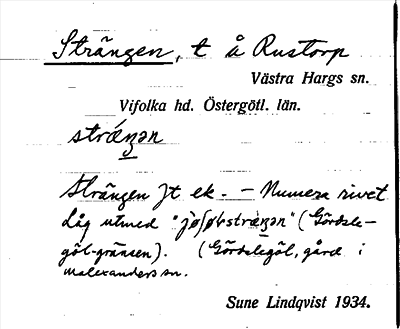 Strängen, t å Rustorp
Västra Hargs sn.
Vifolka hd. Östergötl. län.
strǽŋən
Strängen jt ek. – Numera rivet
Låg utmed "jø̀ʃøl-stræ̀ŋən" (Gördsle-
göl-gränsen). (Gördslegöl, gård i
Malexanders sn.
Sune Lindqvist 1934.